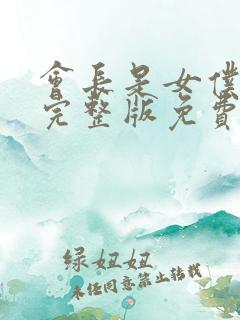 會長是女僕
完整版免費
绿妞妞
未经同意禁止转载